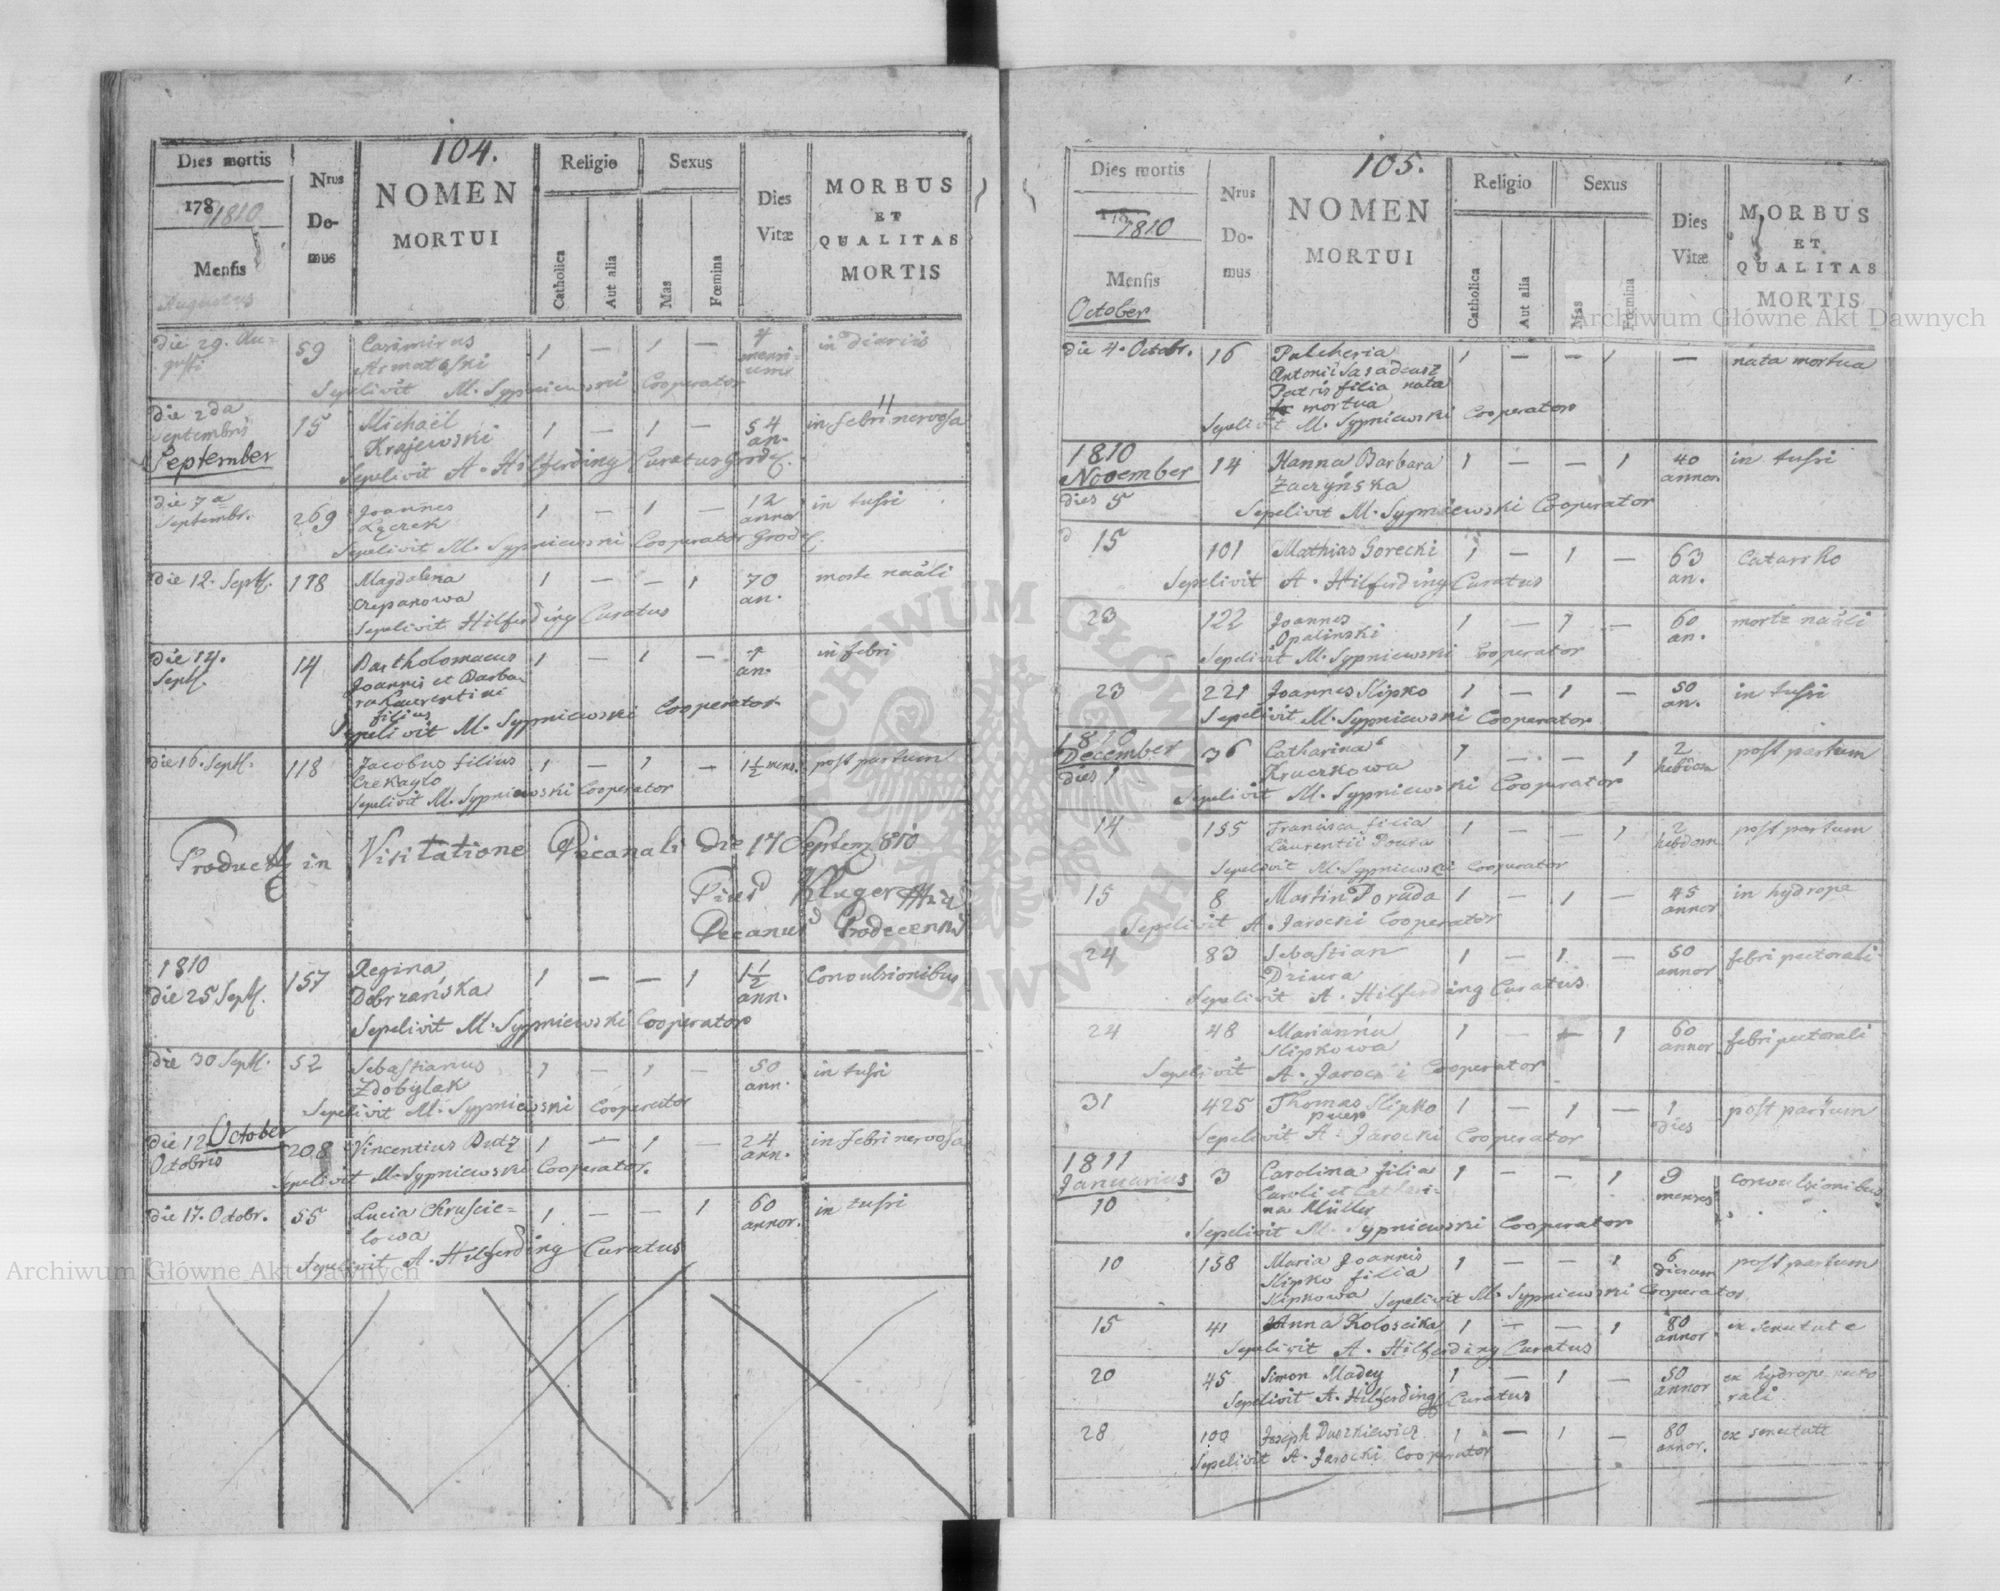 104.
Dies mortis
178 1810
Mensis
Augustus
Nrus Do- mus
NOMEN
MORTUI
Religio
Catholica
Aut alia
Sexus
Mas
Fœmina
Dies Vitæ
MORBUS
ET
QUALITAS
MORTIS
die 29. Au= 59 Casimirus 1 — 1 — 4 in diariis
gusti
mensi=
Sepelivit M. Sypniewski Cooperator
die 2da 15 Michaël 1 — 1 — 54 in febri nervosa
Septembris Krajewski an.
September Sepelivit A. Hilferding Curatus
die 7a 269 Joannes 1 — 1 — 12 in tussi
Septembr. Łączek
Sepelivit M. Sypniewski Cooperator
die 12. Sept. 118 Magdalena 1 — — 1 70 morte naäli
an.
Sepelivit Hilferding Curatus
die 14. 14 Bartholomaeus 1 — 1 — an. in febri
Sept. Joannis et Barba
filius
Sepelivit M. Sypniewski Cooperator
die 16. Sept. 118 Jacobus filius 1 — 1 — 1½ mens. post partum
Czekayło
Sepelivit M. Sypniewski Cooperator
in Visitatione Decanali die 17 Septem 810
Decanus
1810
die 25 Sept. 157 Regina 1 — — 1 1½ Convulsionibus
Dobrzańska ann.
Sepelivit M. Sypniewski Cooperator
die 30 Sept. 52 Sebastianus 1 — 1 — 50 in tussi
Zdobylak ann.
Sepelivit M. Sypniewski Cooperator
October
die 12 208 Vincentius Butz 1 — 1 — 24 in febri nervosa
Octobris ann.
Sepelivit M. Sypniewski Cooperator.
die 17. Octobr. 55 Lucia Chruscie= 1 — — 1 60 in tussi
lowa annor.
Sepelivit A. Hilferding Curatus
105.
Dies mortis
1810
Mensis
October
Nrus Do- mus
NOMEN
MORTUI
Religio
Catholica
Aut alia
Sexus
Mas
Fœmina
Dies Vitæ
MORBUS
ET
QUALITAS
MORTIS
die 4. Octobr. 16 Pulcheria 1 — — 1 — nata mortua
Antonii
Patris filia nata
mortua
Sepelivit M. Sypniewski Cooperator
1810
November 14 Hanna Barbara 1 — — 1 40 in tussi
dies 5 Zaczyńska annor.
Sepelivit M. Sypniewski Cooperator
15 101 Mathias Gorecki 1 — 1 — 63 Catarrho
an.
Sepelivit A. Hilferding Curatus
23 122 Joannes 1 — 1 — 60 morte naäli
Opalinski an.
Sepelivit M. Sypniewski Cooperator
23 221 Joannes Slipko 1 — 1 — 50 in tussi
an.
Sepelivit M. Sypniewski Cooperator
1810
December 36 Catharina 1 — — 1 2 post partum
dies 1 Kruczkowa
Sepelivit M. Sypniewski Cooperator
14 155 Francisca filia 1 — — 1 2 post partum
Laurentii hebdom
Sepelivit M. Sypniewski Cooperator
15 8 Martin Poruda 1 — 1 — 45 in hydrope
annor
Sepelivit A. Jarocki Cooperator
24 83 Sebastian 1 — 1 — 50 febri pectorali
Dziura annor
Sepelivit A. Hilferding Curatus
24 48 Marianna 1 — — 1 60 febri pectorali
Slipkowa annor
Sepelivit A. Jarocki Cooperator
31 425 Thomas Slipko 1 — 1 — 1 post partum
puer dies
Sepelivit A. Jarocki Cooperator
1811
Januarius 3 Carolina filia 1 — — 1 9 convulsionibus
10 Caroli et Cathari- menses
na Müller
Sepelivit M. Sypniewski Cooperator
10 158 Maria Joannis 1 — — 1 6 post partum
Slipko filia dierum
Slipkowa Sepelivit M. Sypniewski Cooperator
15 41 Anna Koloscika 1 — — 1 80 ex senectute
annor
Sepelivit A. Hilferding Curatus
20 45 Simon Madey 1 — 1 — 50 ex hydrope pecto
annor rali
Sepelivit A. Hilferding Curatus
28 100 Joseph Duszkiewicz 1 — 1 — 80 ex senectute
annor.
Sepelivit A. Jarocki Cooperator
Archiwum Główne Akt Dawnych
Archiwum Główne Akt Dawnych
ARCHIWUM GŁÓWNE AKT DAWNYCH